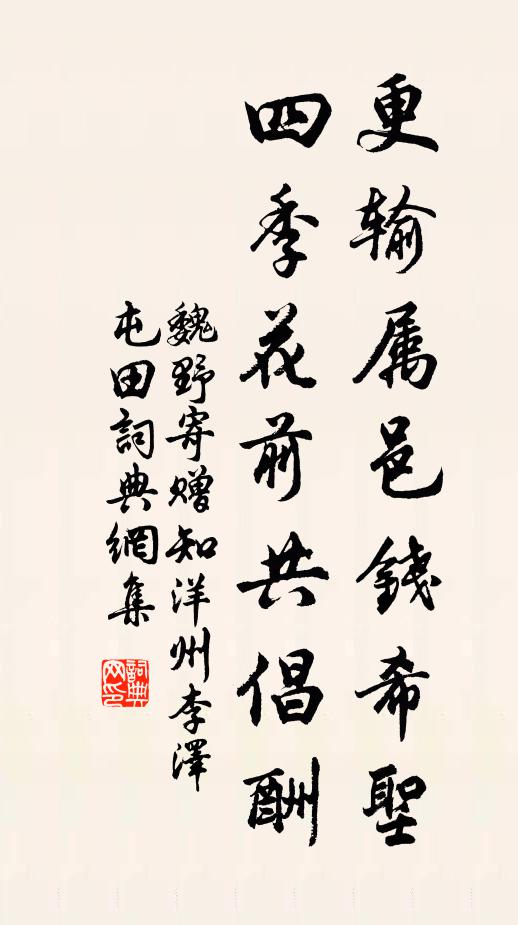 更输属邑錢希聖
四季花前共倡酬
魏野寄赠知洋州李澤
屯田詞典網集
詞典网印